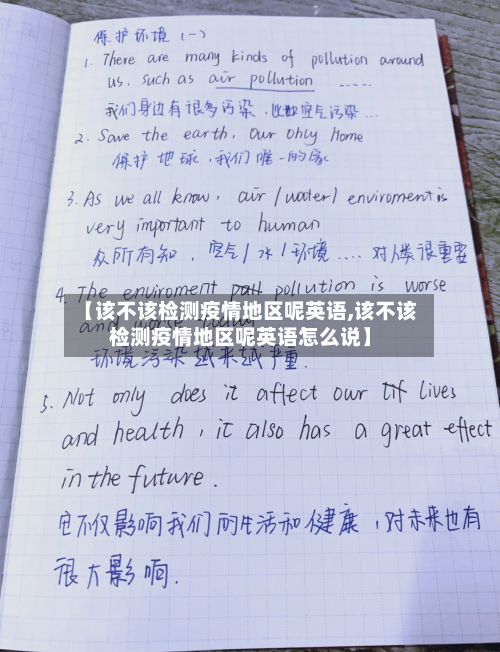 保护环境（一）
1. There are many kinds of pollution around
us, such as air pollution .....
我们身边有很多污染，比如空气污染...
2. Save the earth, Our Only home
保护地球，我们唯一的家
3. As we all know, air / water / enviroment is
very important to human
众所有知，空气 / 水 / 环境 .... 对人类很重要
4. The enviroment pollution is worse
【该不该检测疫情地区呢英语,该不该
检测疫情地区呢英语怎么说】
环境污染越来越严重.
5. Not only does it affect our lives
and health, it also has a great effect
in the future.
它不仅影响我们的生活和健康，对未来也有
很大影响.